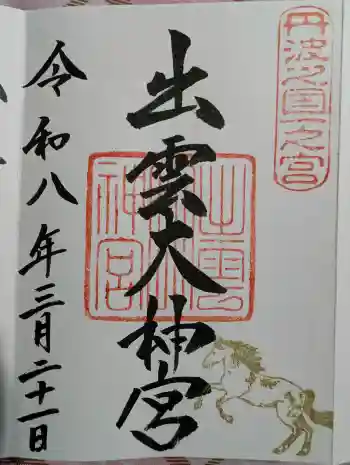 丹波國一之宮
出雲大神宮
出雲大神宮
令和八年三月二十一日